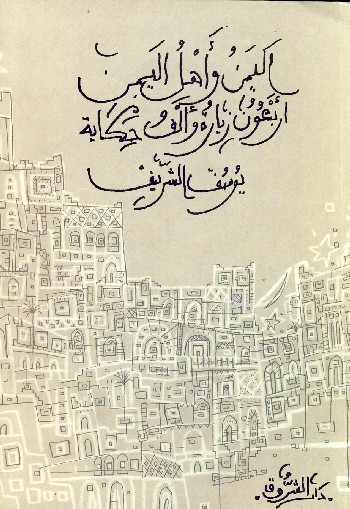 اليَمنُ وَأَهْلُ اليَمن
أربَعُونَ زيارةً وَأَلفُ حِكاية
يوسُف الشّريف
دَار الشّروق